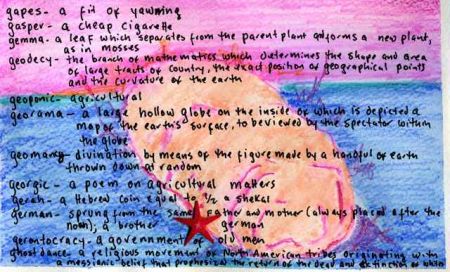 gapes - a fit of yawning
gasper - a cheap cigarette
gemma - a leaf which separates from the parent plant and forms a new plant,
as in mosses
geodecy - the branch of mathematics which determines the shape and area
of large tracts of country, the exact position of geographical points
and the curvature of the earth
geoponic - agricultural
georama - a large hollow globe on the inside of which is depicted a
map of the earth's surface, to be viewed by the spectator within
the globe
geomany - divination by means of the figure made by a handful of earth
thrown down at random
georgic - a poem on agricultural matters
gerah - a Hebrew coin equal to 1/2 a shekal
german - sprung from the same father and mother (always placed after the
noun); a brother german
gerontocracy - a government of old men
ghost dance - a religious movement of North American tribes originating with
a messianic belief that prophesized the return of the dead and extinction of